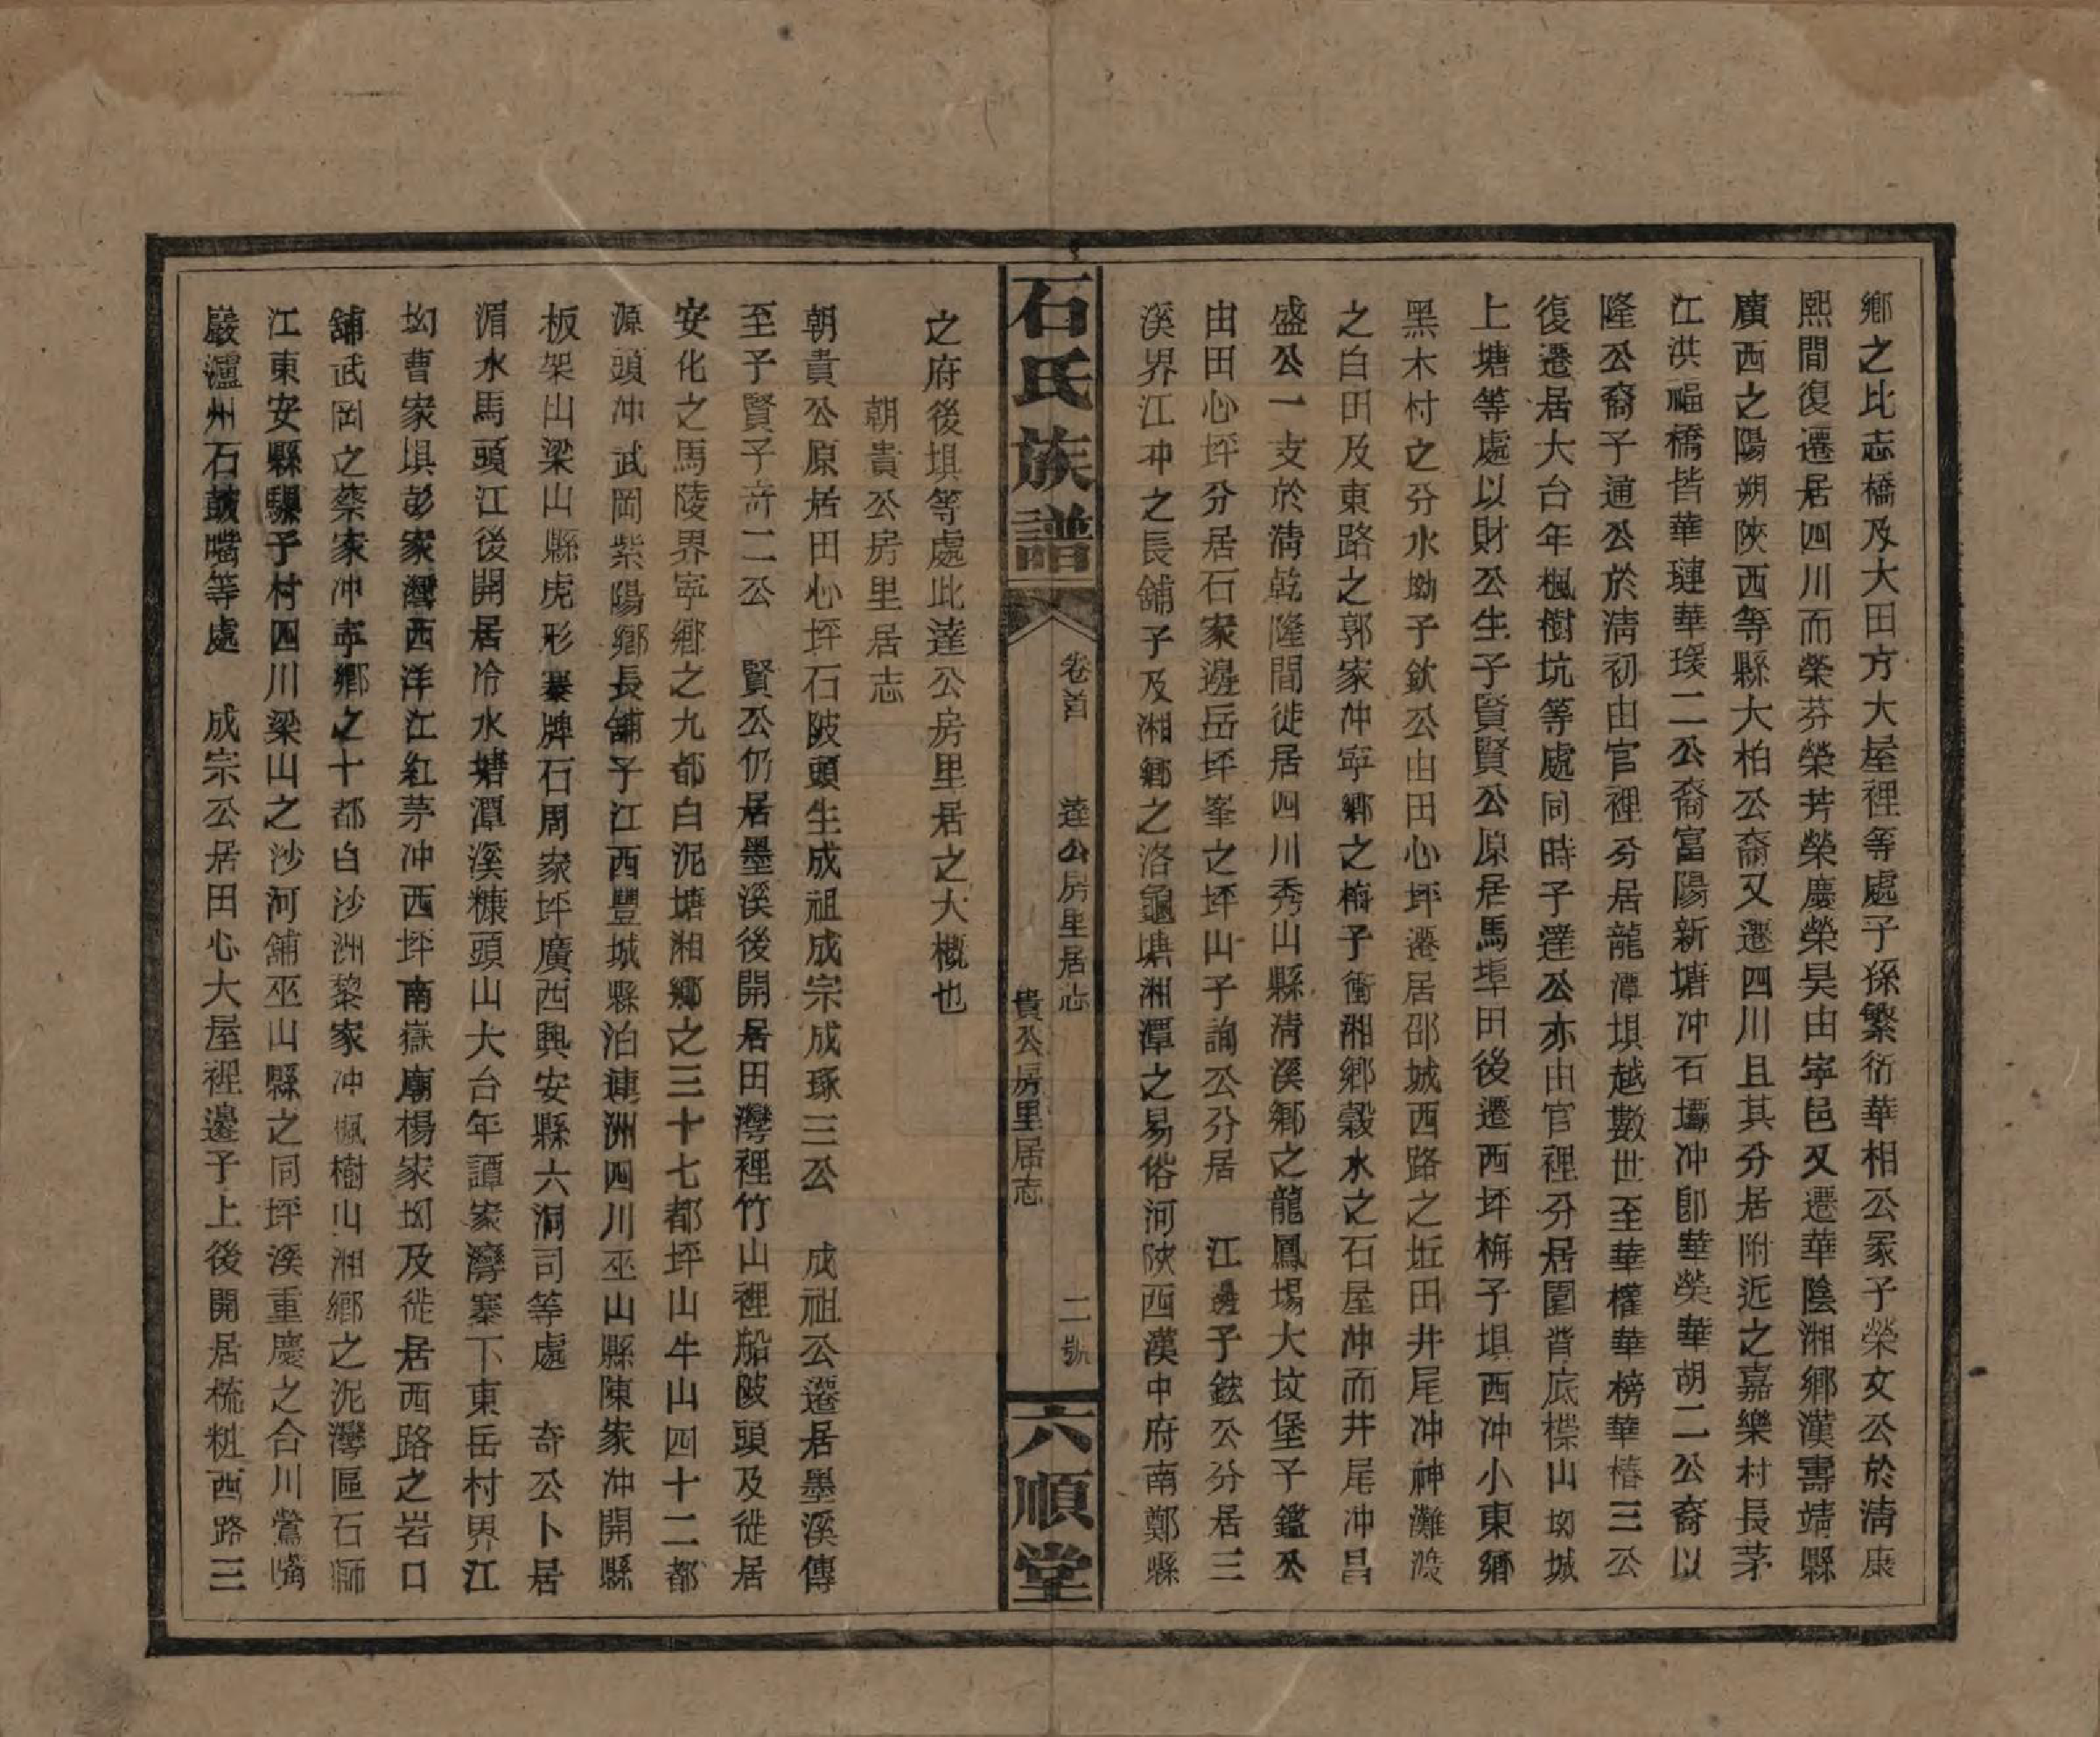 鄉之比志橋及大田方大屋裡等處子孫繁衍華相公冢子榮文公於清康
熙間復遷居四川而榮芬榮芳榮慶榮昊由寧邑又遷華陰湘鄉漢壽靖縣
廣西之陽朔陝西等縣大柏公裔又遷四川且其分居附近之嘉樂村長茅
江洪福橋皆華璉華瑗二公裔富陽新塘冲石壩冲卽華榮華胡二公裔以
隆公裔子通公於清初由官裡分居龍潭垻越數世至華權華榜華椿三公
復遷居大台年楓樹坑等處同時子達公亦由官裡分居園背底楪山坳城
上塘等處以財公生子賢賢公原居馬埠田後遷西坪梅子垻西冲小東鄉
黑木村之分水坳子欽公由田心坪遷居邵城西路之近田井尾冲神灘渡
之白田及東路之郭家冲寧鄉之梅子衝湘鄉穀水之石屋冲而井尾冲昌
盛公一支於清乾隆間徙居四川秀山縣清溪鄉之龍鳳場大坟堡子鑑公
由田心坪分居石家邊岳坪峯之坪山子詢公分居　江邊子鉉公分居三
溪界江冲之長舖子及湘鄉之洛龜塘湘潭之易俗河陝西漢中府南鄭縣
石氏族譜
卷首　達公房里居志
貴公房里居志
二號
六順堂
之府後垻等處此達公房里居之大概也
朝貴公房里居志
朝貴公原居田心坪石陂頭生成祖成宗成琢三公　成祖公遷居墨溪傳
至子賢子奇二公　賢公仍居墨溪後開居田灣裡竹山裡船陂頭及徙居
安化之馬陵界寧鄉之九都白泥塘湘鄉之三十七都坪山牛山四十二都
源頭冲武岡紫陽鄉長舖子江西豐城縣泊連洲四川巫山縣陳家冲開縣
板架山梁山縣虎形寨牌石周家坪廣西興安縣六洞司等處　奇公卜居
湄水馬頭江後開居冷水塘潭溪糠頭山大台年譚家灣寨下東岳村界江
坳曹家垻彭家灣西洋江紅茅冲西坪南嶽廟楊家坳及徙居西路之岩口
舖武岡之蔡家冲寧鄉之十都白沙洲黎家冲楓樹山湘鄉之泥灣區石獅
江東安縣騾子村四川梁山之沙河舖巫山縣之同坪溪重慶之合川鶯嘴
巖瀘州石鼓嘴等處　成宗公居田心大屋裡邊子上後開居梳粃西路三